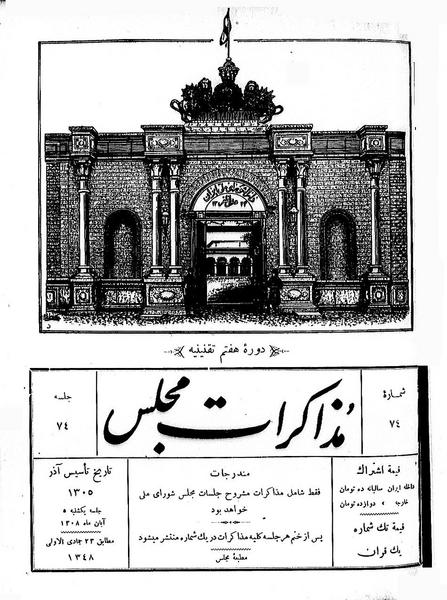 دورهٔ هفتم تقنینیه
شمارهٔ
۷۴
مذاکرات مجلس
جلسه
۷۴
قیمة اشتراك
داخله ایران سالیانه ده تومان
خارجه » دوازده تومان
قیمة تك شماره
یك قران
مندرجات
فقط شامل مذاکرات مشروح جلسات مجلس شورای ملی
خواهد بود
پس از ختم هر جلسه کلیه مذاکرات در یك شماره منتشر میشود
مطبعهٔ مجلس
تاریخ تأسیس آذر
۱۳۰۵
جلسه یکشنبه ۵
آبان ماه ۱۳۰۸
مطابق ۲۳ جمادی الاولی
۱۳۴۸